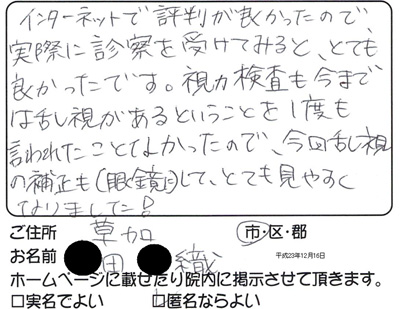 インターネットで評判が良かったので、
実際に診察を受けてみると、とても
良かったです。視力検査も今まで
は乱視があるということを1度も
言われたことなかったので、今回乱視
の補正も(眼鏡に)して、とても見やすく
なりました!
ご住所 草加 市・区・郡
お名前 田 織 平成23年12月16日
ホームページに載せたり院内に掲示させて頂きます。
□実名でよい □匿名ならよい